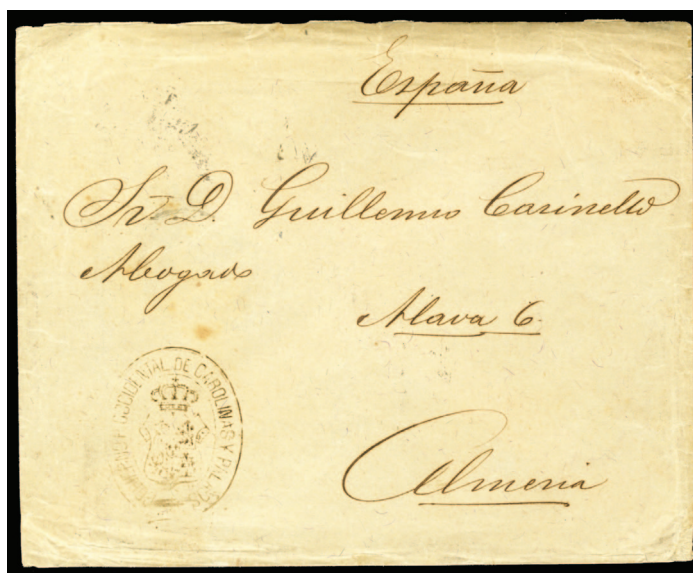 España
Sr. D. Guillermo Carinetto
Abogado
Alava 6.
Almeria
OCCIDENTAL DE CAROLINAS Y PALAOS